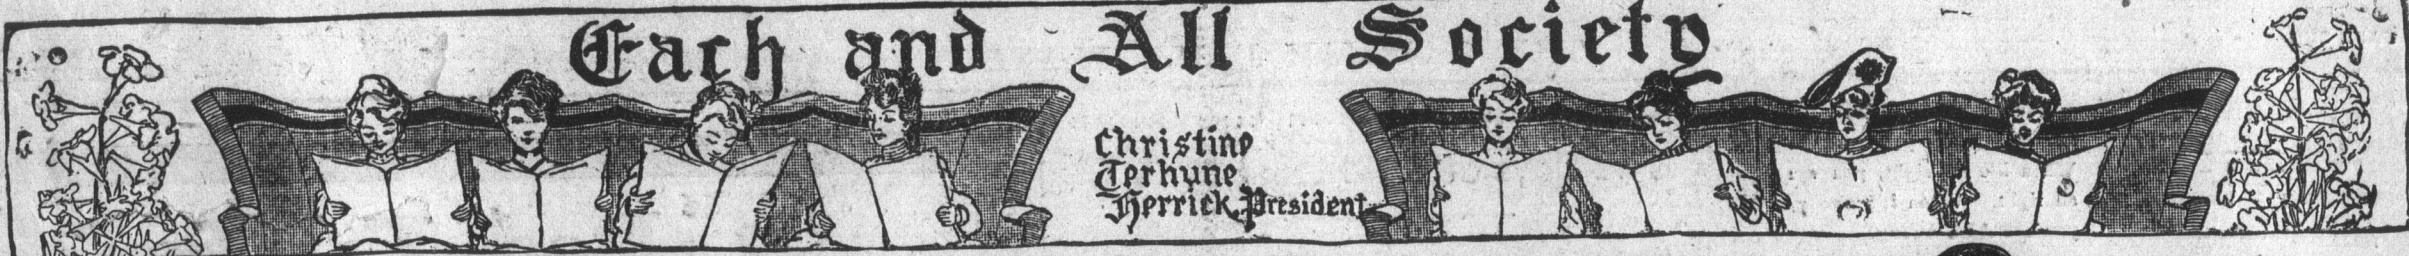 Each and All Society
Christine
Terhune
Herrick, President